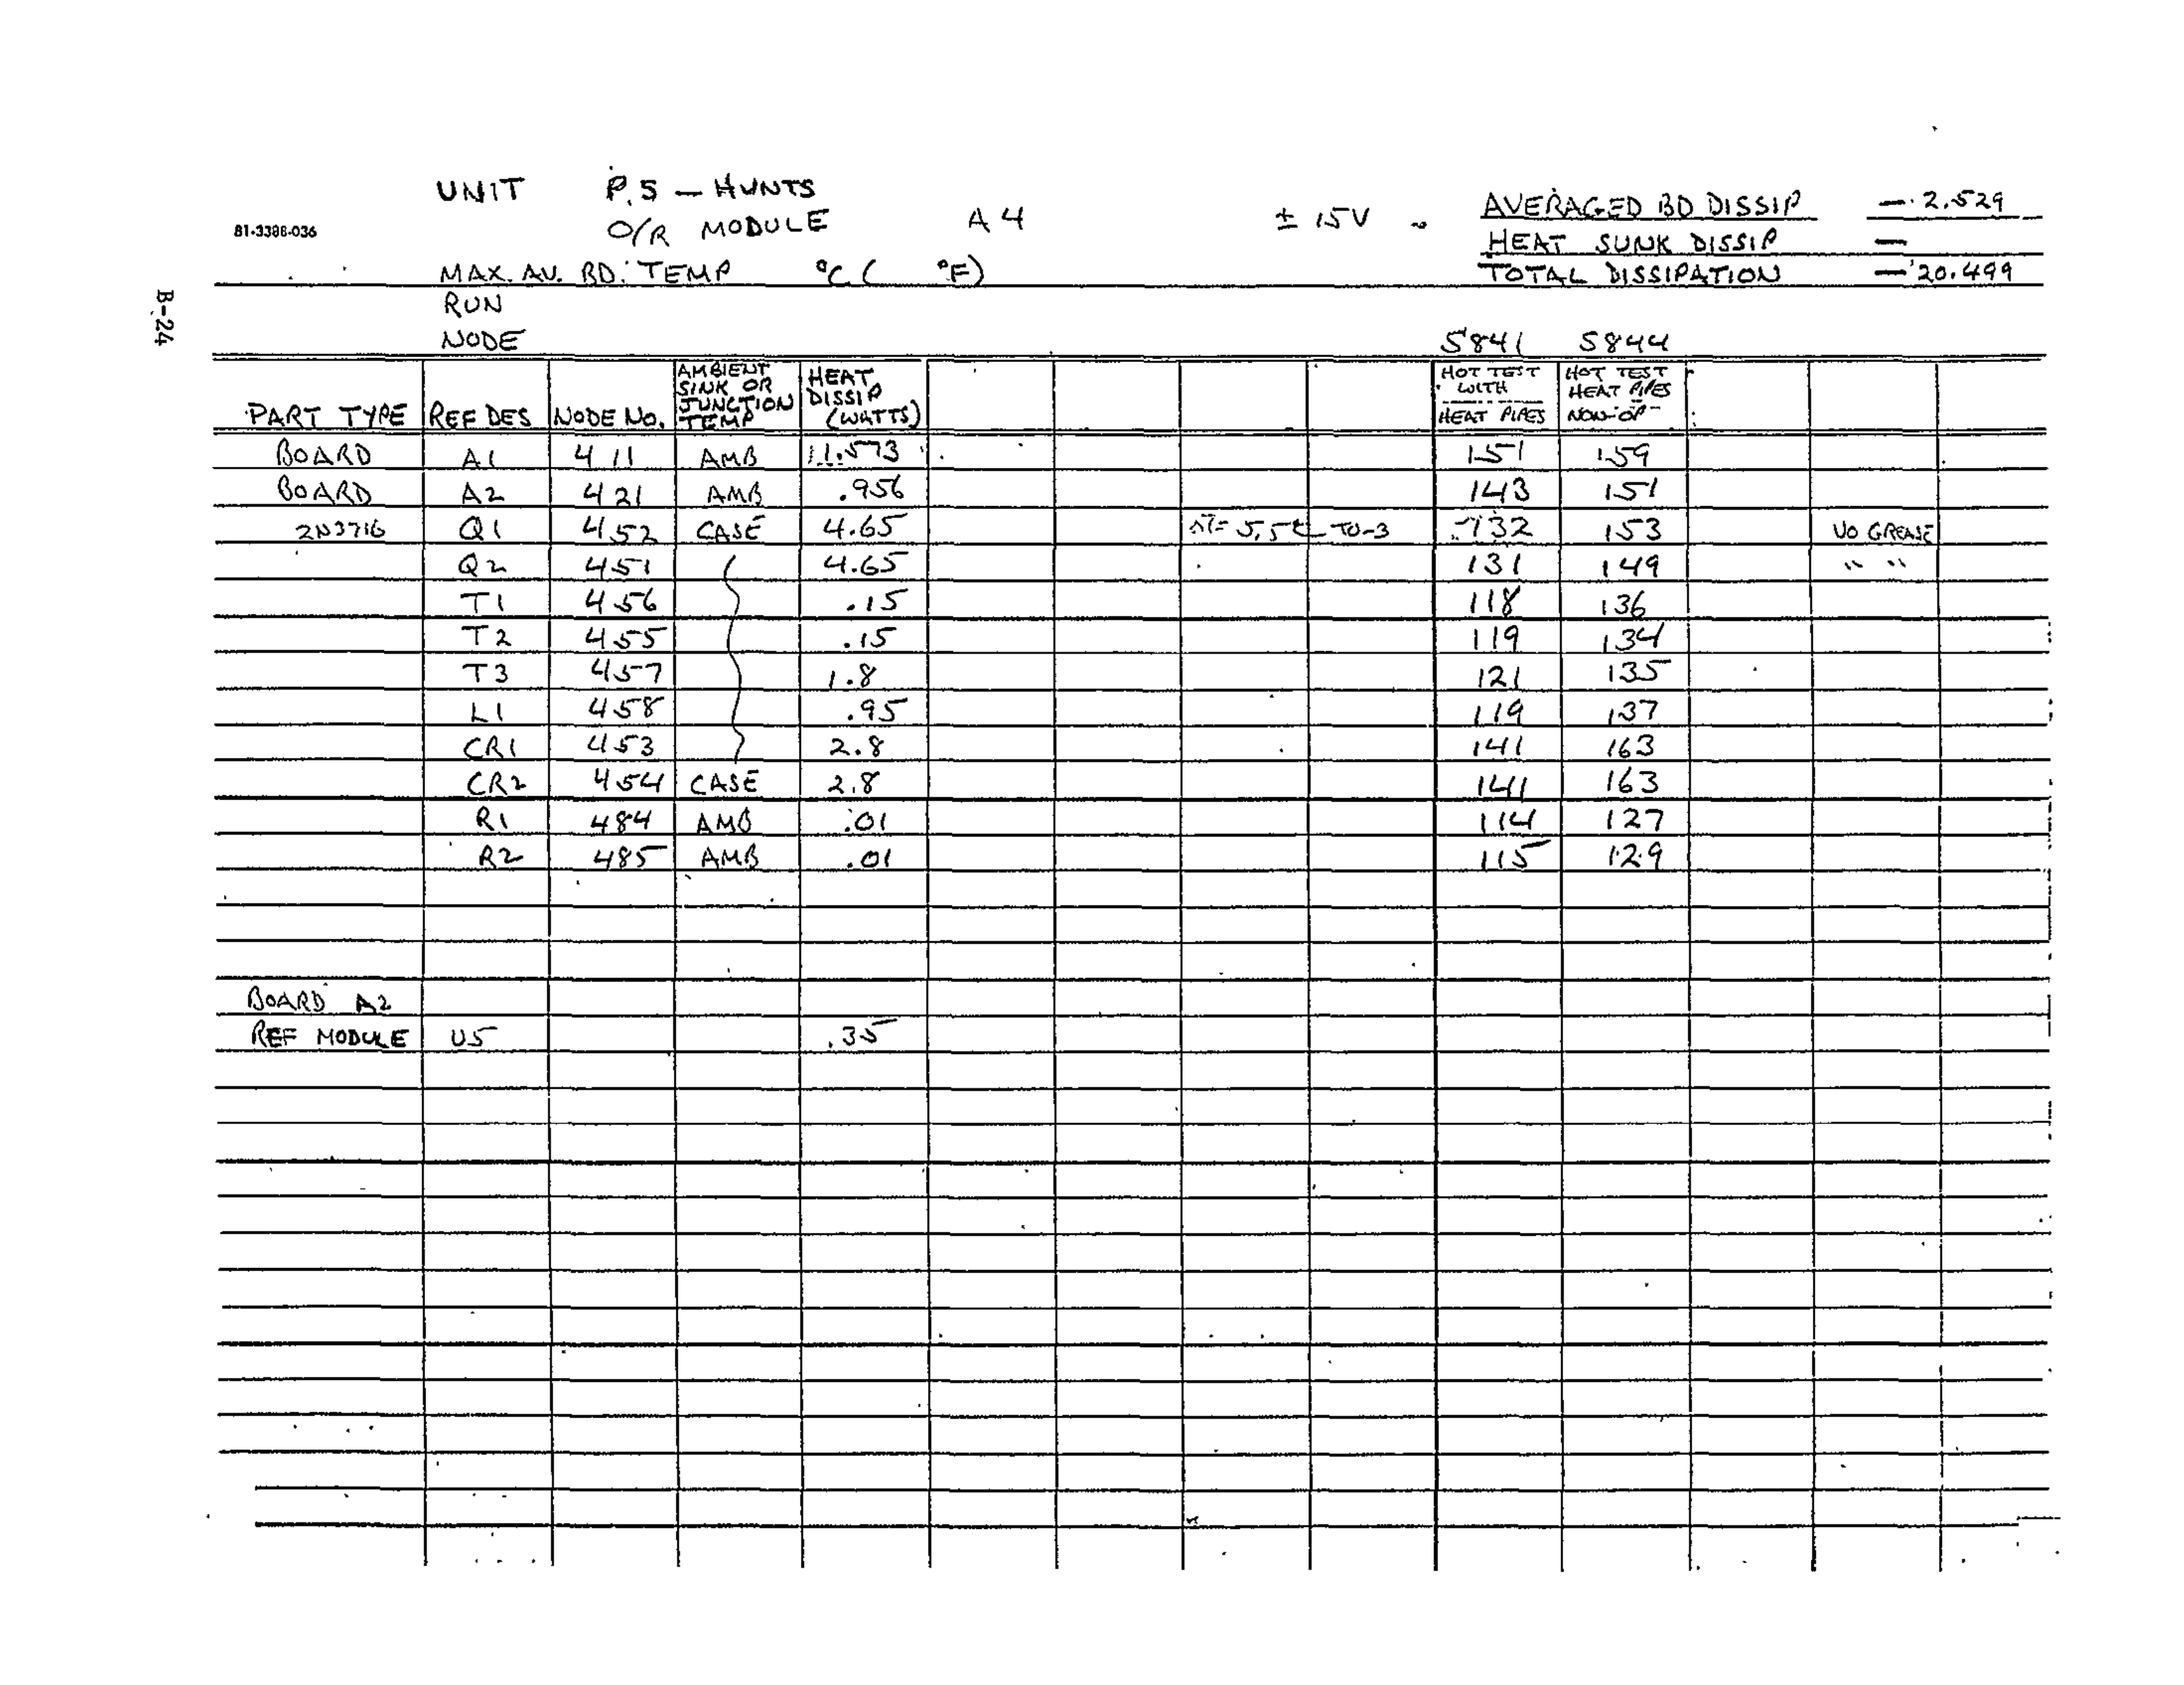 UNIT P.S – HUNTS
AVERAGED BD DISSIP — 2.529
81-3388-036
O/R MODULE A4 ± 15V
HEAT SUNK DISSIP —
MAX. AV. BD. TEMP °C ( °F)
TOTAL DISSIPATION — 20.499
B-24
RUN
NODE 5841 5844
PART TYPE REF DES NODE NO. AMBIENT SINK OR JUNCTION TEMP HEAT DISSIP (WATTS) HOT TEST WITH HEAT PIPES HOT TEST HEAT PIPES NON-OP
BOARD A1 411 AMB 1.573 151 159
BOARD A2 421 AMB .956 143 151
2N3716 Q1 452 CASE 4.65 ΔT= 5.5 TO-3 132 153 NO GREASE
Q2 451 4.65 131 149 " "
T1 456 .15 118 136
T2 455 .15 119 134
T3 457 1.8 121 135
L1 458 .95 119 137
CR1 453 2.8 141 163
CR2 454 CASE 2.8 141 163
R1 484 AMB .01 114 127
R2 485 AMB .01 115 129
BOARD A2
REF MODULE U5 .35